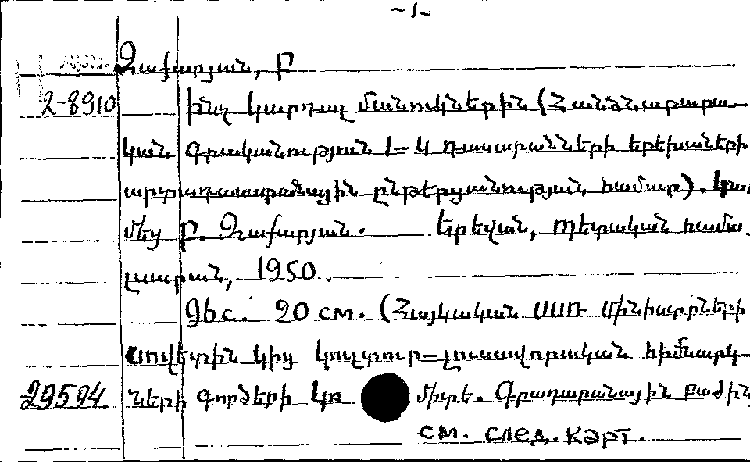 -1-
Զաքարյան, Բ
2-8910 Ինչ կարդալ մանուկներին (Հանձնարարա-
կան գրականություն 1-4 դասարանների երեխաների
արտադասարանային ընթերցանության համար). Կազ
մեց Բ. Զաքարյան. Երևան, Պետական համա-
լսարան, 1950
96 с. 20 см. (Հայկական ՍՍՌ մինիստրների
սովետին կից կուլտուր-լուսավորական հիմնարկ-
29594 ների գործերի կոմիտե. Գրադարանային բաժին
см. след. карт.